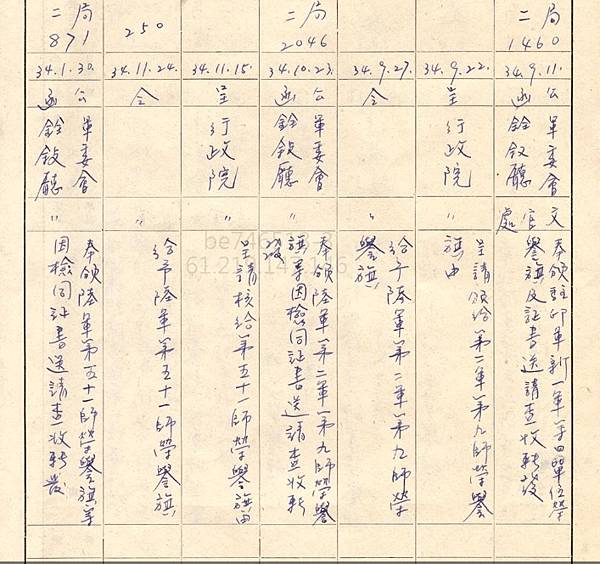 二局
1460
34.9.11.
公函
軍委會
銓敘廳
文官處
奉頒駐印軍新一軍等四單位榮
譽旗及証書送請查收轉發
34.9.22.
呈
行政院
〃
呈請頒給第二軍第九師榮譽
旗由
34.9.27.
令
〃
給予陸軍第二軍第九師榮
譽旗
二局
2046
34.10.23.
公函
軍委會
銓敘廳
〃
奉頒陸軍第二軍第九師榮譽
旗等因檢同証書送請查收轉
發
34.11.15.
呈
行政院
〃
呈請核給第五十一師榮譽旗由
250
34.11.24.
令
〃
給予陸軍第五十一師榮譽旗
二局
871
34.1.30.
公函
軍委會
銓敘廳
〃
奉頒陸軍第五十一師榮譽旗等
因檢同証書送請查收轉發